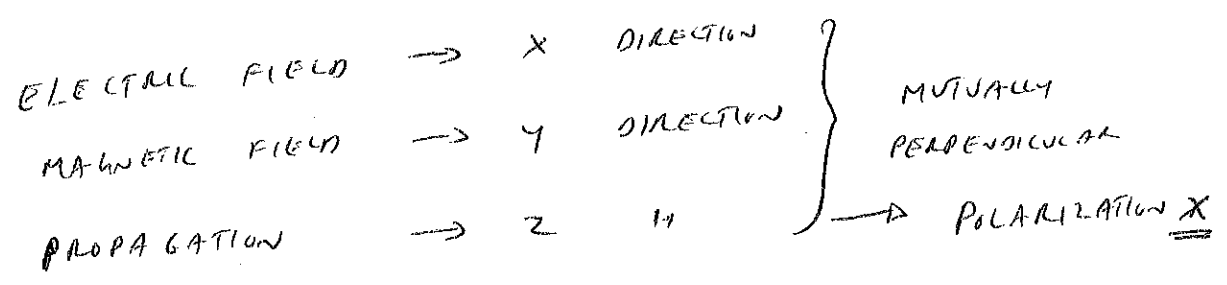 ELECTRIC FIELD → X DIRECTION
MAGNETIC FIELD → Y DIRECTION
PROPAGATION → Z "
MUTUALLY
PERPENDICULAR
→ POLARIZATION X